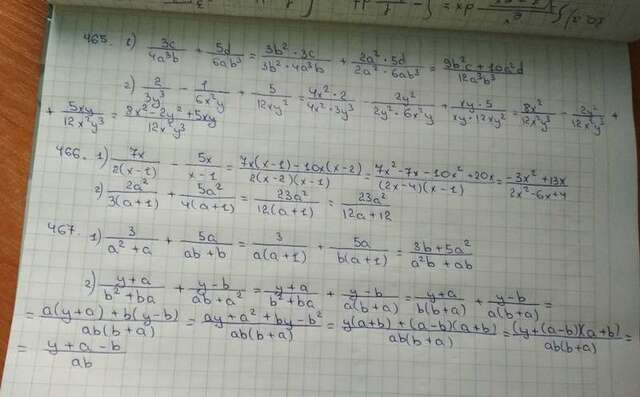 465. 1) 3c/4a³b + 5d/6ab³ = 3b²·3c/3b²·4a³b + 2a²·5d/2a²·6ab³ = 9b²c+10a²d/12a³b³
2) 2/3y³ - 1/6x²y + 5/12xy² = 4x²·2/4x²·3y³ - 2y²/2y²·6x²y + xy·5/xy·12xy² = 8x²/12x²y³ - 2y²/12x²y³ +
+ 5xy/12x²y³ = 8x²-2y²+5xy/12x²y³
466. 1) 7x/2(x-1) - 5x/x-1 = 7x(x-1)-10x(x-2)/2(x-2)(x-1) = 7x²-7x-10x²+20x/(2x-4)(x-1) = -3x²+13x/2x²-6x+4
2) 2a²/3(a+1) + 5a²/4(a+1) = 23a²/12(a+1) = 23a²/12a+12
467. 1) 3/a²+a + 5a/ab+b = 3/a(a+1) + 5a/b(a+1) = 3b+5a²/a²b+ab
2) y+a/b²+ba + y-b/ab+a² = y+a/b²+ba + y-b/a(b+a) = y+a/b(b+a) + y-b/a(b+a) =
= a(y+a)+b(y-b)/ab(b+a) = ay+a²+by-b²/ab(b+a) = y(a+b)+(a-b)(a+b)/ab(b+a) = (y+(a-b)(a+b)/ab(b+a) =
= y+a-b/ab